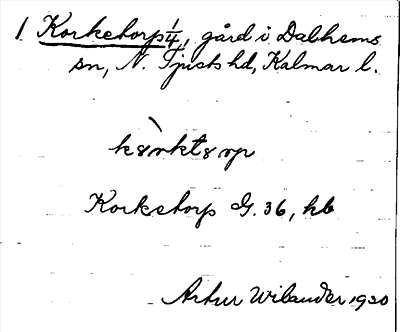 1. Korketorp 1/4, gård i Dalhems
sn, N. Tjusts hd, Kalmar l.
Korketorp G. 36, hb
Artur Wilander 1920